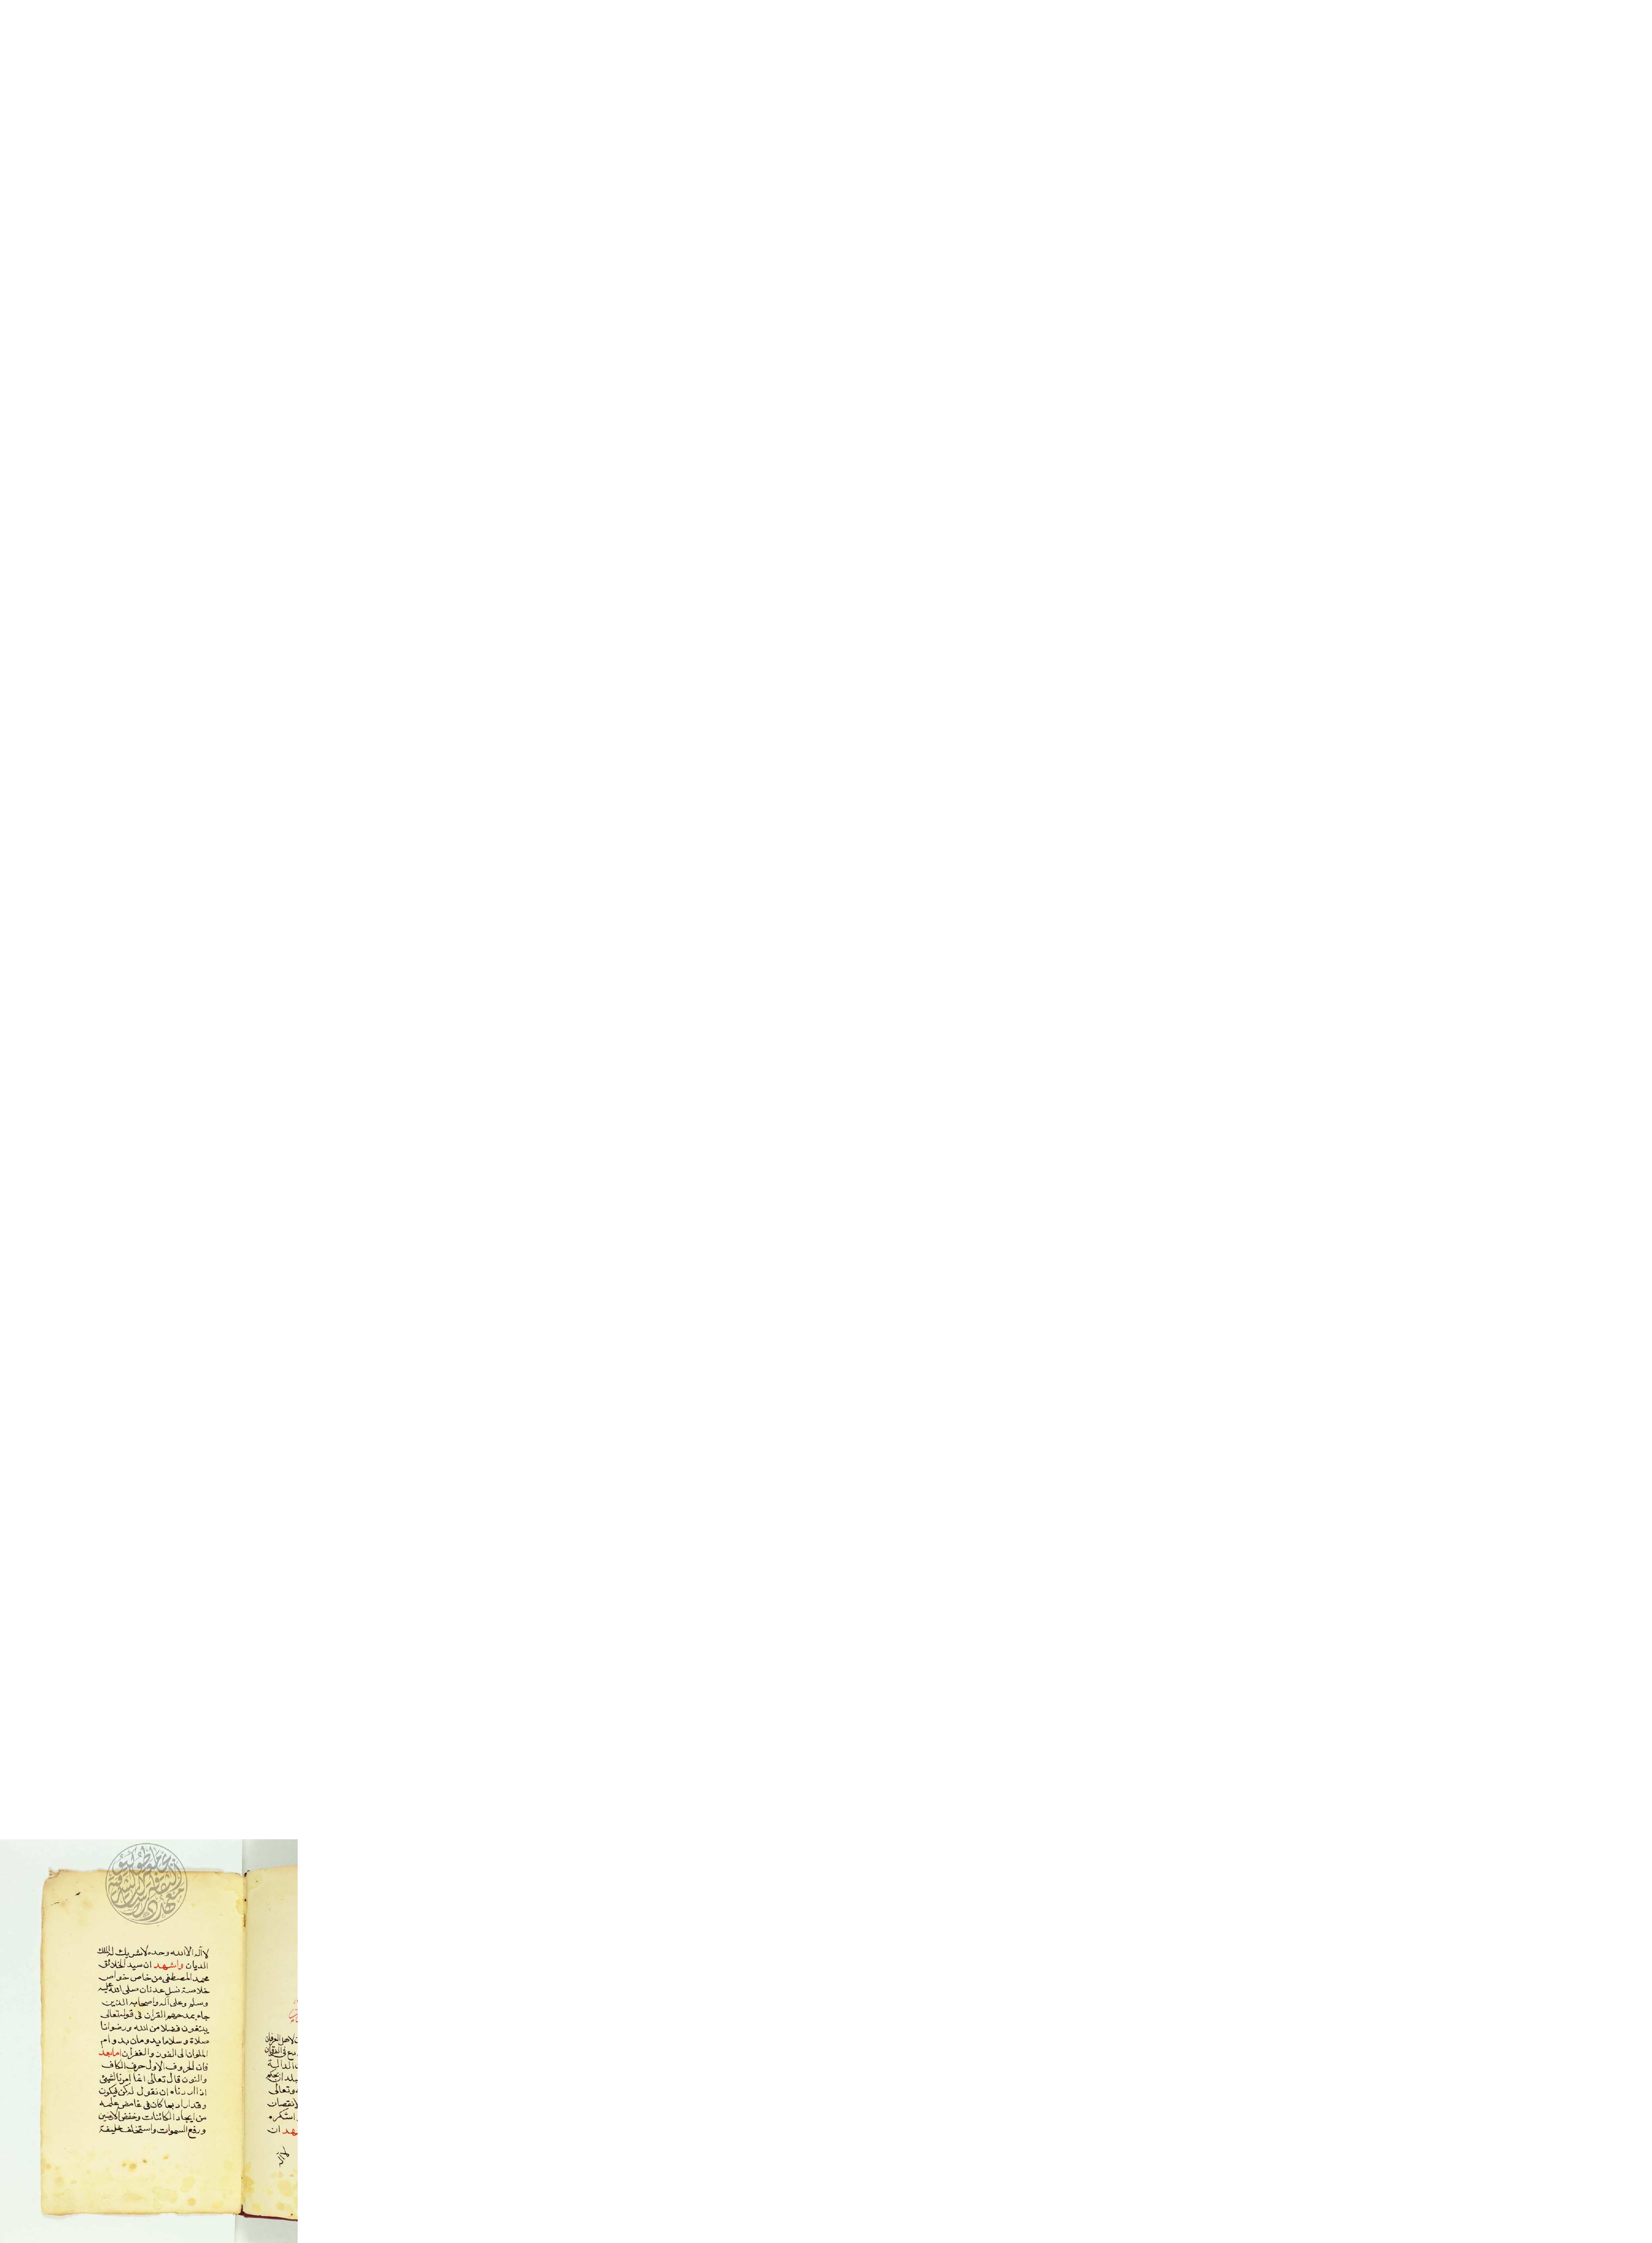 ن لاهل العرفان
الدالة
بلدان
وتعالى
لانقصان
اشكره
هد ان
لا اله الا الله وحده لا شريك له الملك
الديان واشهد ان سيد الخلائق
محمد المصطفى من خاص خواص
خلاصة نسل عدنان صلى الله عليه
وسلم وعلى اله واصحابه الذين
جاء مدحهم القران في قوله تعالى
يبتغون فضلا من الله ورضوانا
صلاة وسلاما يدومان بدوام
الملوان الى الفوز والغفران اما بعد
فان الحروف الاول حرف الكاف
والنون قال تعالى انما امرنا لشيئ
اذا اردناه ان نقول له كن فيكون
وقد اراد بما كان في غامض علمه
من ايجاد الكائنات وخفض الارضين
ورفع السموات واستخلف خليفة